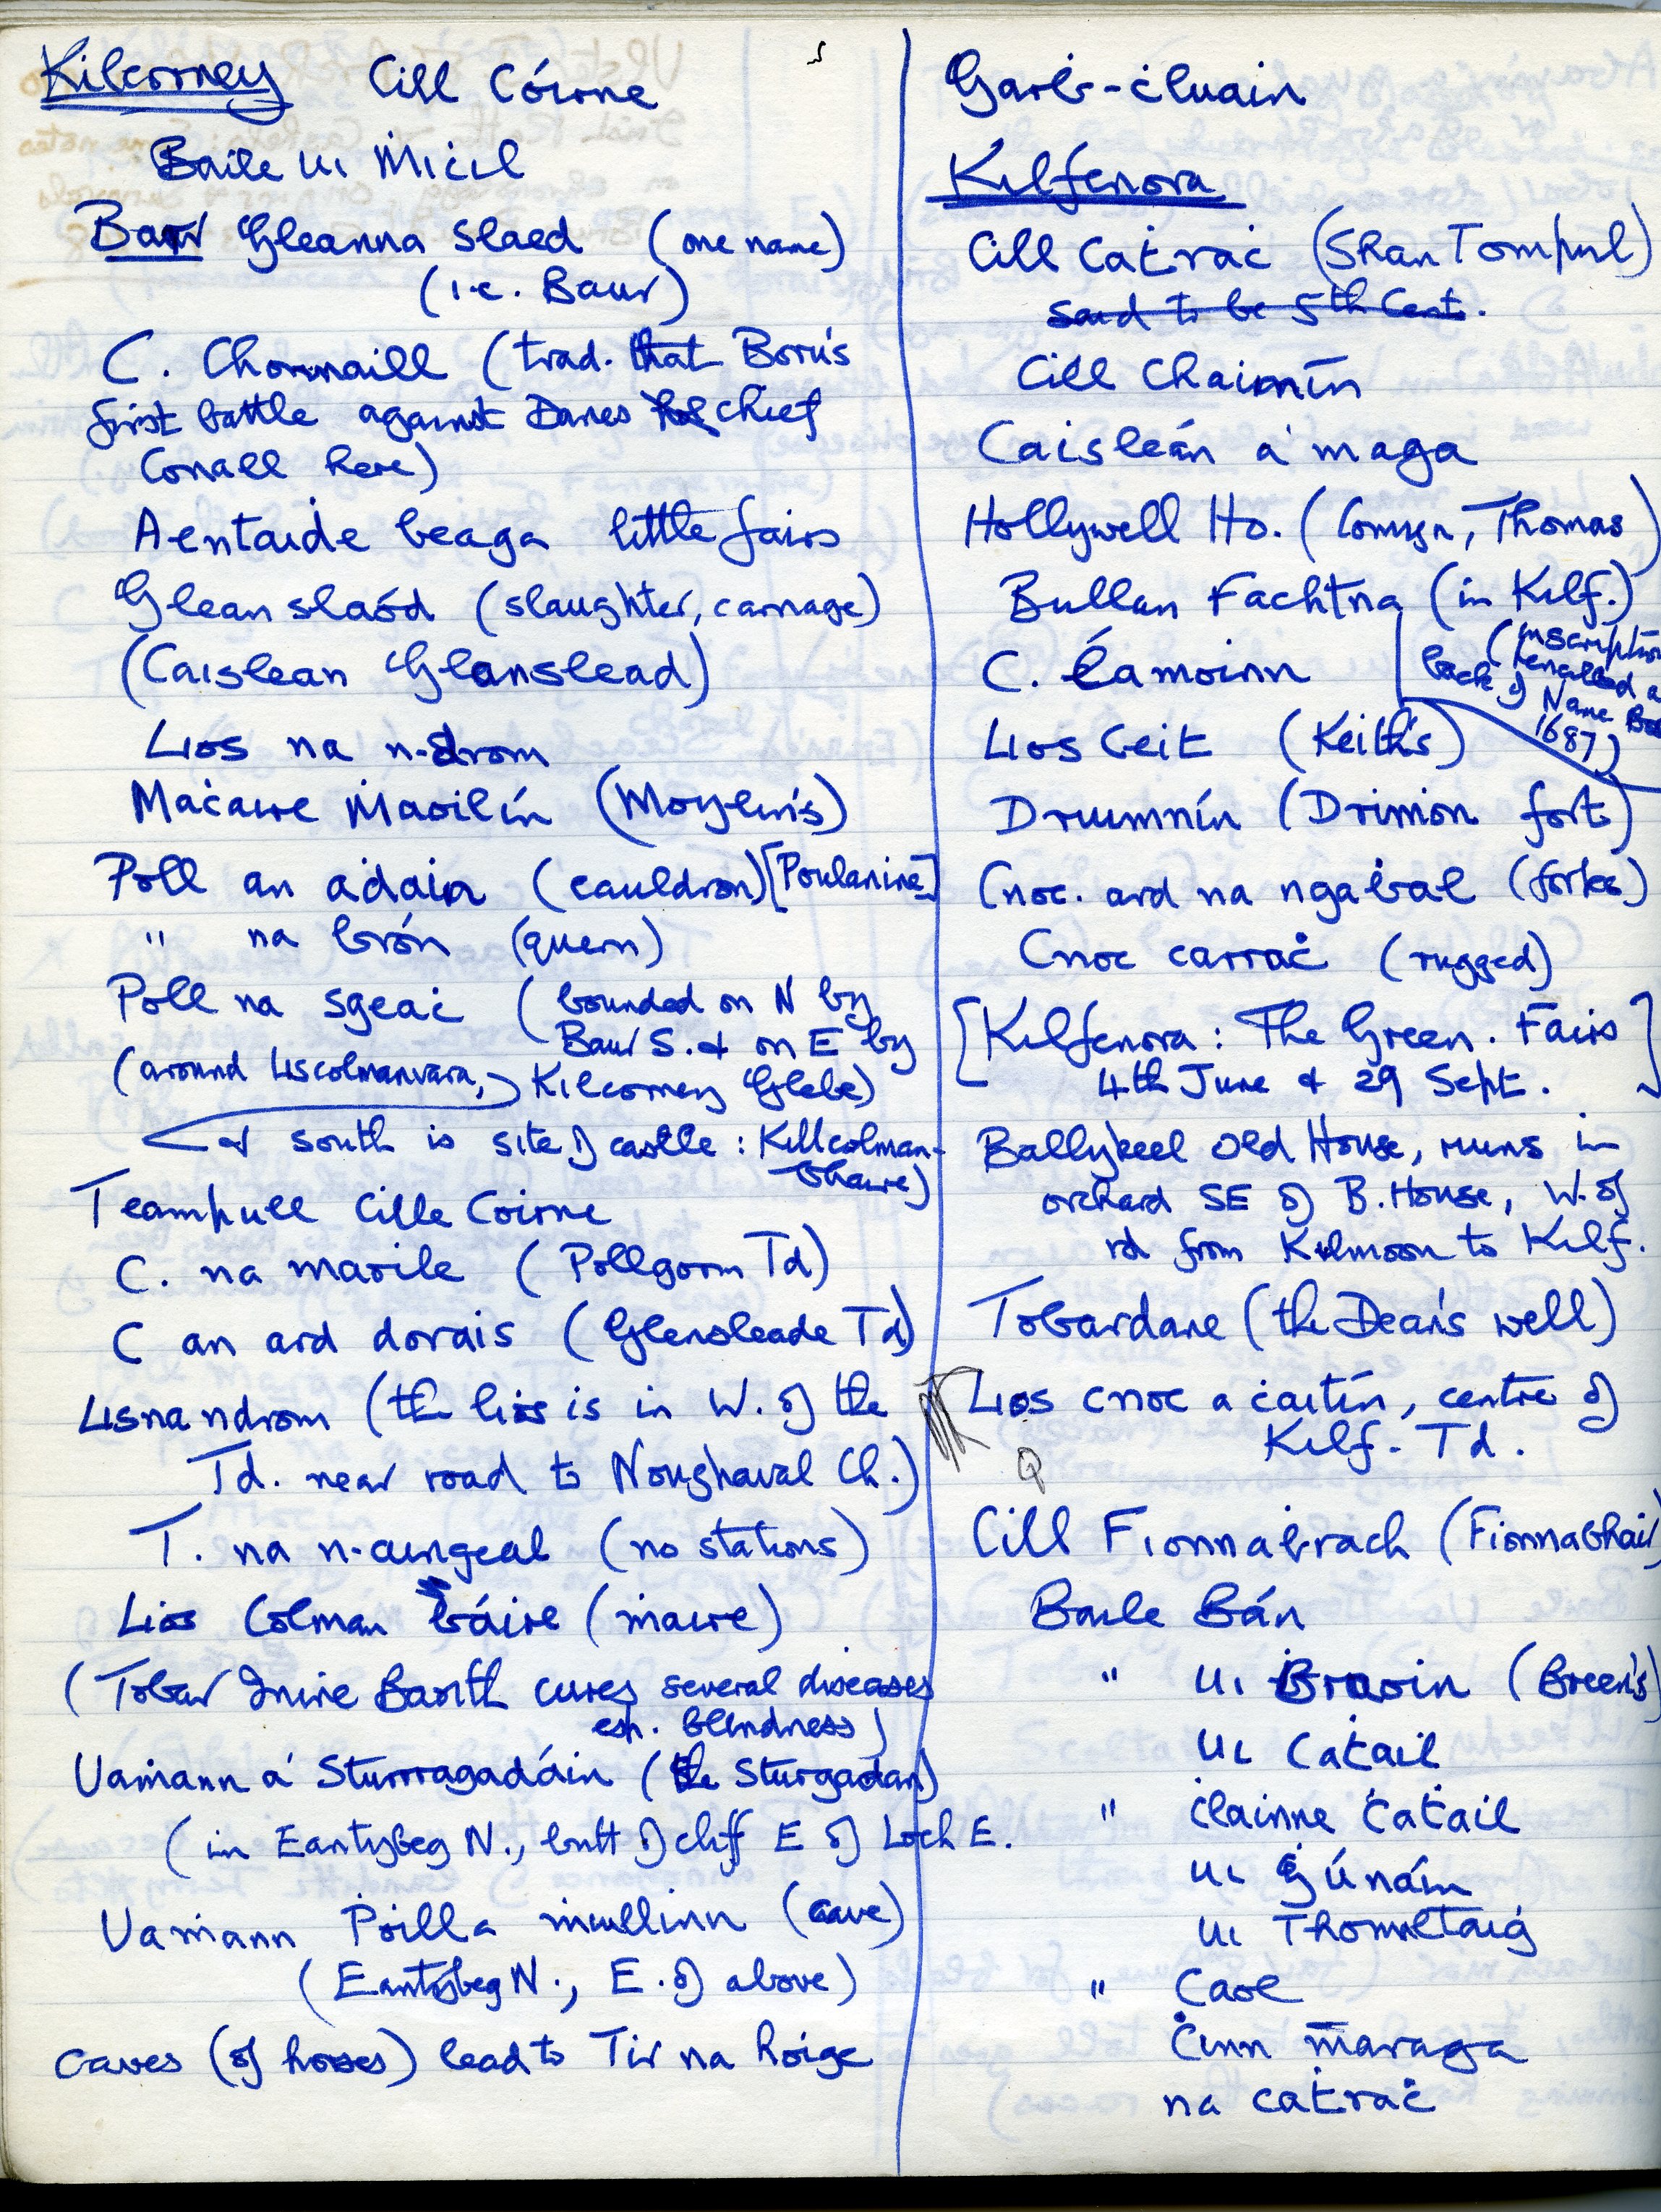 Kilcorney Cill Cóirne
Baile uı Ṁıċıl
Baur Gleanna Slaed (one name)
(i.e. Baur)
C. Chonnaill (trad. that Boru's
first battle against Danes chief
Conall here)
Aentaiḋe beaga little fairs
Glean slaód (slaughter, carnage)
(Caislean Glanslead)
Lios na n-drom
Maċaire Ṁaoilín (Moylin's)
Poll an aḋain (cauldron) [Poulanine]
" na brón (quern)
Poll na sgeaċ (bounded on N by
Baur S. & on E by
(around Liscolmanvara,) Kilcorney Glebe)
& south is site of castle : Killcolman-
bhaire)
Teampull Cille Coirne
C. na maoile (Pollgorm Td)
C an ard dorais (Glensleade Td)
Lisnandrom (the lios is in W. of the
Td. near road to Noughaval Ch.)
T. na n-aingeal (no stations)
Lios Colman ḃáire (ṁaire)
(Tobar Inine Baoith cures several diseases
esp. blindness)
Uaṁann a' Sturrragadáin (the Sturgadan)
(in Eantybeg N., butt of cliff E of Loch E.
Uaṁann Poill a ṁuilinn (cave)
(Eantybeg N., E. of above)
caves (of horses) lead to Tir na hoige
Garḃ-ċluain
Kilfenora
Cill Caṫraċ (Shan Tompul)
said to be 5th Cent.
Cill Chaimín
Caisleán a' maga
Hollywell Ho. (Comyn, Thomas)
Bullan Fachtna (in Kilf.)
(inscription
back of Name
1687)
C. Éamoinn
Lios Ceit (Keith's)
Druimnín (Drimon fort)
Cnoc. ard na ngaḃal (forks)
Cnoc carraċ (rugged)
[Kilfenora : The Green. Fairs
4th June & 29 Sept.]
Ballykeel Old House, ruins in
orchard SE of B. House, W. of
rd from Kilmoon to Kilf.
Tobardane (the Dean's well)
Lios cnoc a ċaitín, centre of
Kilf. Td.
Q
Cill Fionnaḃrach (Fionnabhair)
Baile Bán
" uı Braoin (Breen's)
uı Caṫail
" ċlainne Ċaṫail
uı Ġúnáin
uı Thomltaiġ
" Caol
Ċinn ṁaraga
na caṫraċ